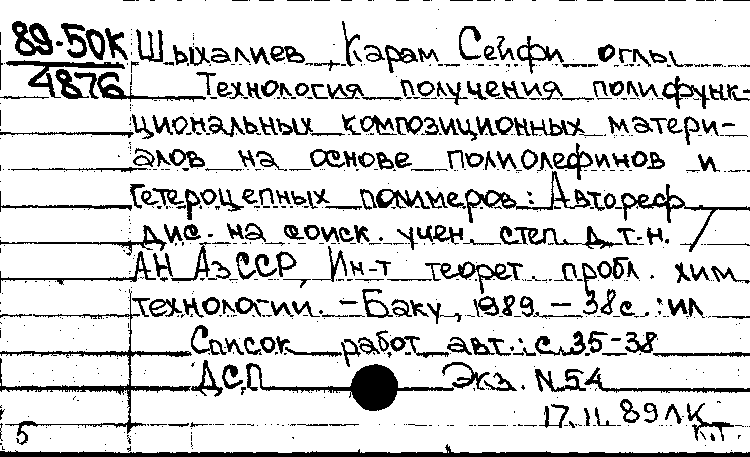 89-50К Шыхалиев, Карам Сейфи оглы
4876 Технология получения полифунк-
циональных композиционных матери-
алов на основе полиолефинов и
гетероцепных полимеров: Автореф.
дис. на соиск. учен. степ. д.т.н. /
АН АзССР, Ин-т теорет. пробл. хим
технологии. - Баку, 1989. - 38 с. : ил
Список работ авт.: с. 35-38
ДСП Экз. N 54
17.11.89 ЛК
5 К.Т.